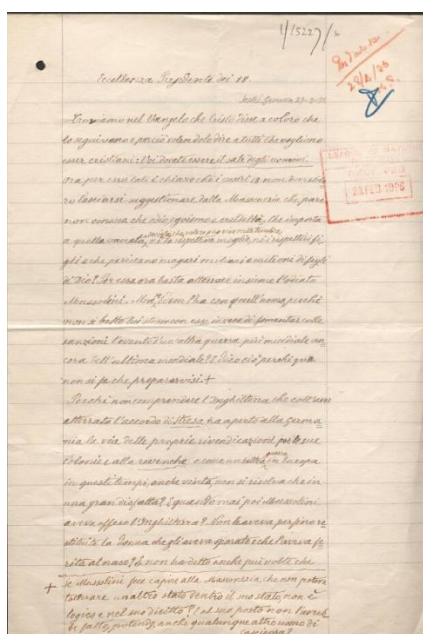 1/15227/
Eccellenza Presidente dei 18.
23 FEB 1936
Troviamo nel Vangelo che Cristo dice a coloro che
lo seguivano e perciò volendo dire a tutti che vogliono
esser cristiani: Voi dovete essere il sale degli uomini.
Ora per essi tali è chiaro che i vostri 18 non dovrebbe
ro lasciarsi suggestionare dalla Massoneria che pare
non conosca che odio, egoismo e crudeltà, che importa
a quella
gli che periscano magari milioni e milioni di figli
di Dio? Per essa ora basta atterrare insieme l'odiato
Mussolini. Ma, se l'ha con quell'uomo, perché
non si batte lui stesso con esso invece di fomentar colle
sanzioni l'avento d'un'altra guerra più mondiale an
cora dell'ultima mondiale? E dico ciò perché qua
non si fa che prepararvisi +
Perché non comprendere l'Inghilterra che coll'aver
atterrato l'accordo di Stresa, ha aperto alla Germa
nia la via delle proprie rivendicazioni per le sue
Colonie e alla revanche e come un'altra guerra in Europa
in questi tempi, anche vinta, non si risolva che in
una gran disfatta? E quando mai poi Mussolini
aveva offeso l'Inghilterra? Non le aveva perfino re
stituita la donna che gli aveva sparato e che l'aveva fe
rito al naso? E non ha detto anche più volte che
+ Se Mussolini fece capire alla Massoneria che non poteva
tollerare un altro stato dentro il suo stato, non è
logico e nel suo diritto? E al suo posto non l'avreb
be fatto, potendo, anche qualunque altro uomo di
coscienza?